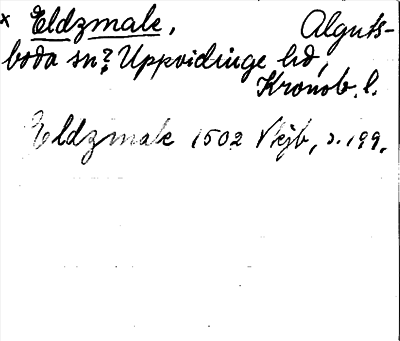 x Eldzmale, Alguts-
boda sn? Uppvidinge hd,
Kronob. l.
Eldzmale 1502 Vkjb, s. 199.